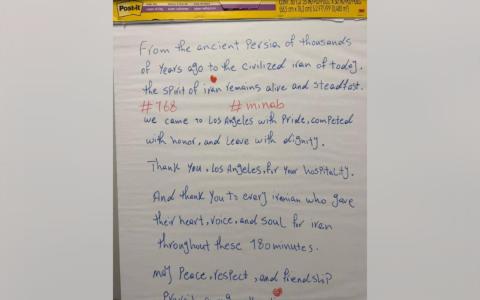 Post-it
From the ancient Persia of thousands
of years ago to the civilized iran of today,
the spirit of iran remains alive and steadfast.
#168 #minab
we came to Los Angeles with Pride, competed
with honor, and Leave with dignity.
Thank you, Los Angeles, for your hospitality.
And thank you to every iranian who gave
their heart, voice, and soul for iran
throughout these 180 minutes.
may peace, respect, and friendship